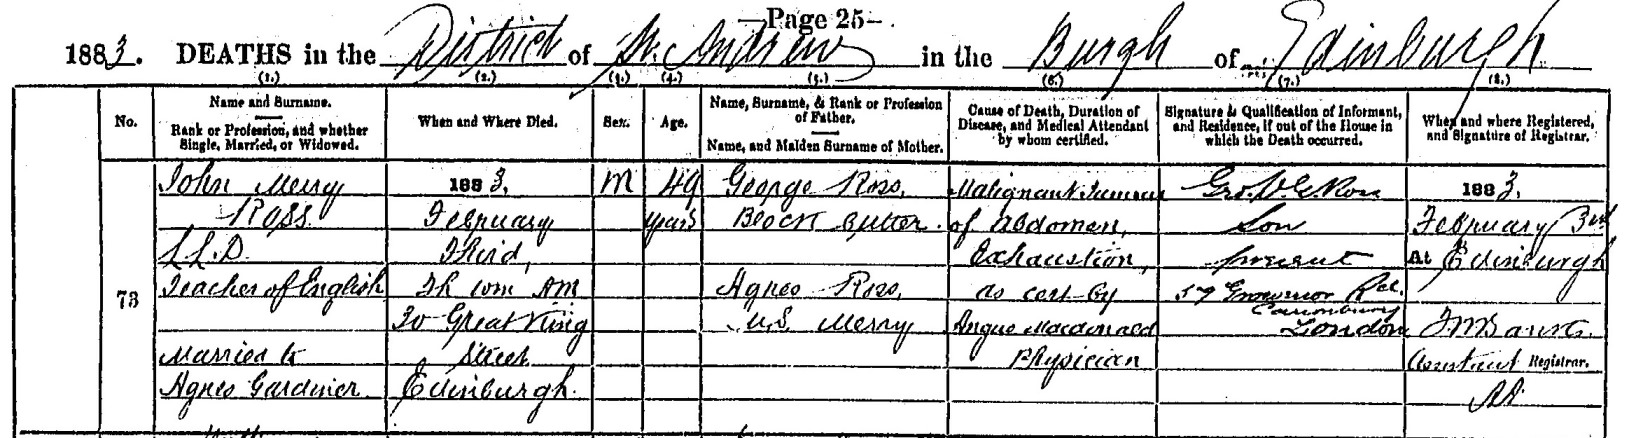 —Page 25—
1883. DEATHS in the District of St. Andrew in the Burgh of Edinburgh
(1.) (2.) (3.) (4.) (5.) (6.) (7.) (8.)
No.
Name and Surname.
Rank or Profession, and whether
Single, Married, or Widowed.
When and Where Died.
Sex.
Age.
Name, Surname, & Rank or Profession
of Father.
Name, and Maiden Surname of Mother.
Cause of Death, Duration of
Disease, and Medical Attendant
by whom certified.
Signature & Qualification of Informant,
and Residence, if out of the House in
which the Death occurred.
When and where Registered,
and Signature of Registrar.
73
John Merry
Ross
LL.D.
Teacher of English
Married to
Agnes Gardiner
1883,
February
Third,
7h 10m AM
30 Great King
Street
Edinburgh.
M
49
years
George Ross,
Block Cutter
Agnes Ross,
M.S. Merry
Malignant Tumour
of abdomen,
Exhaustion,
as cert by
Angus Macdonald
Physician
Geo. Ross
Son
present
59 Grosvenor
Canonbury
London
1883,
February 3rd
At Edinburgh
Assistant Registrar.